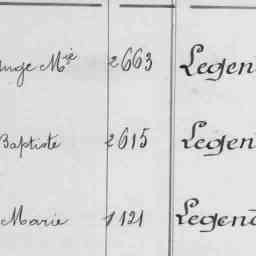 Ange Mie 2663 Legen
Baptiste 2615 Legen
Marie 1121 Legend